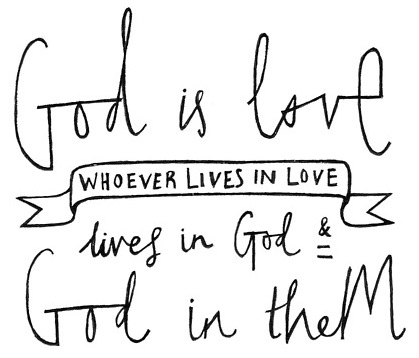 God is love
WHOEVER LIVES IN LOVE
lives in God &
God in theM